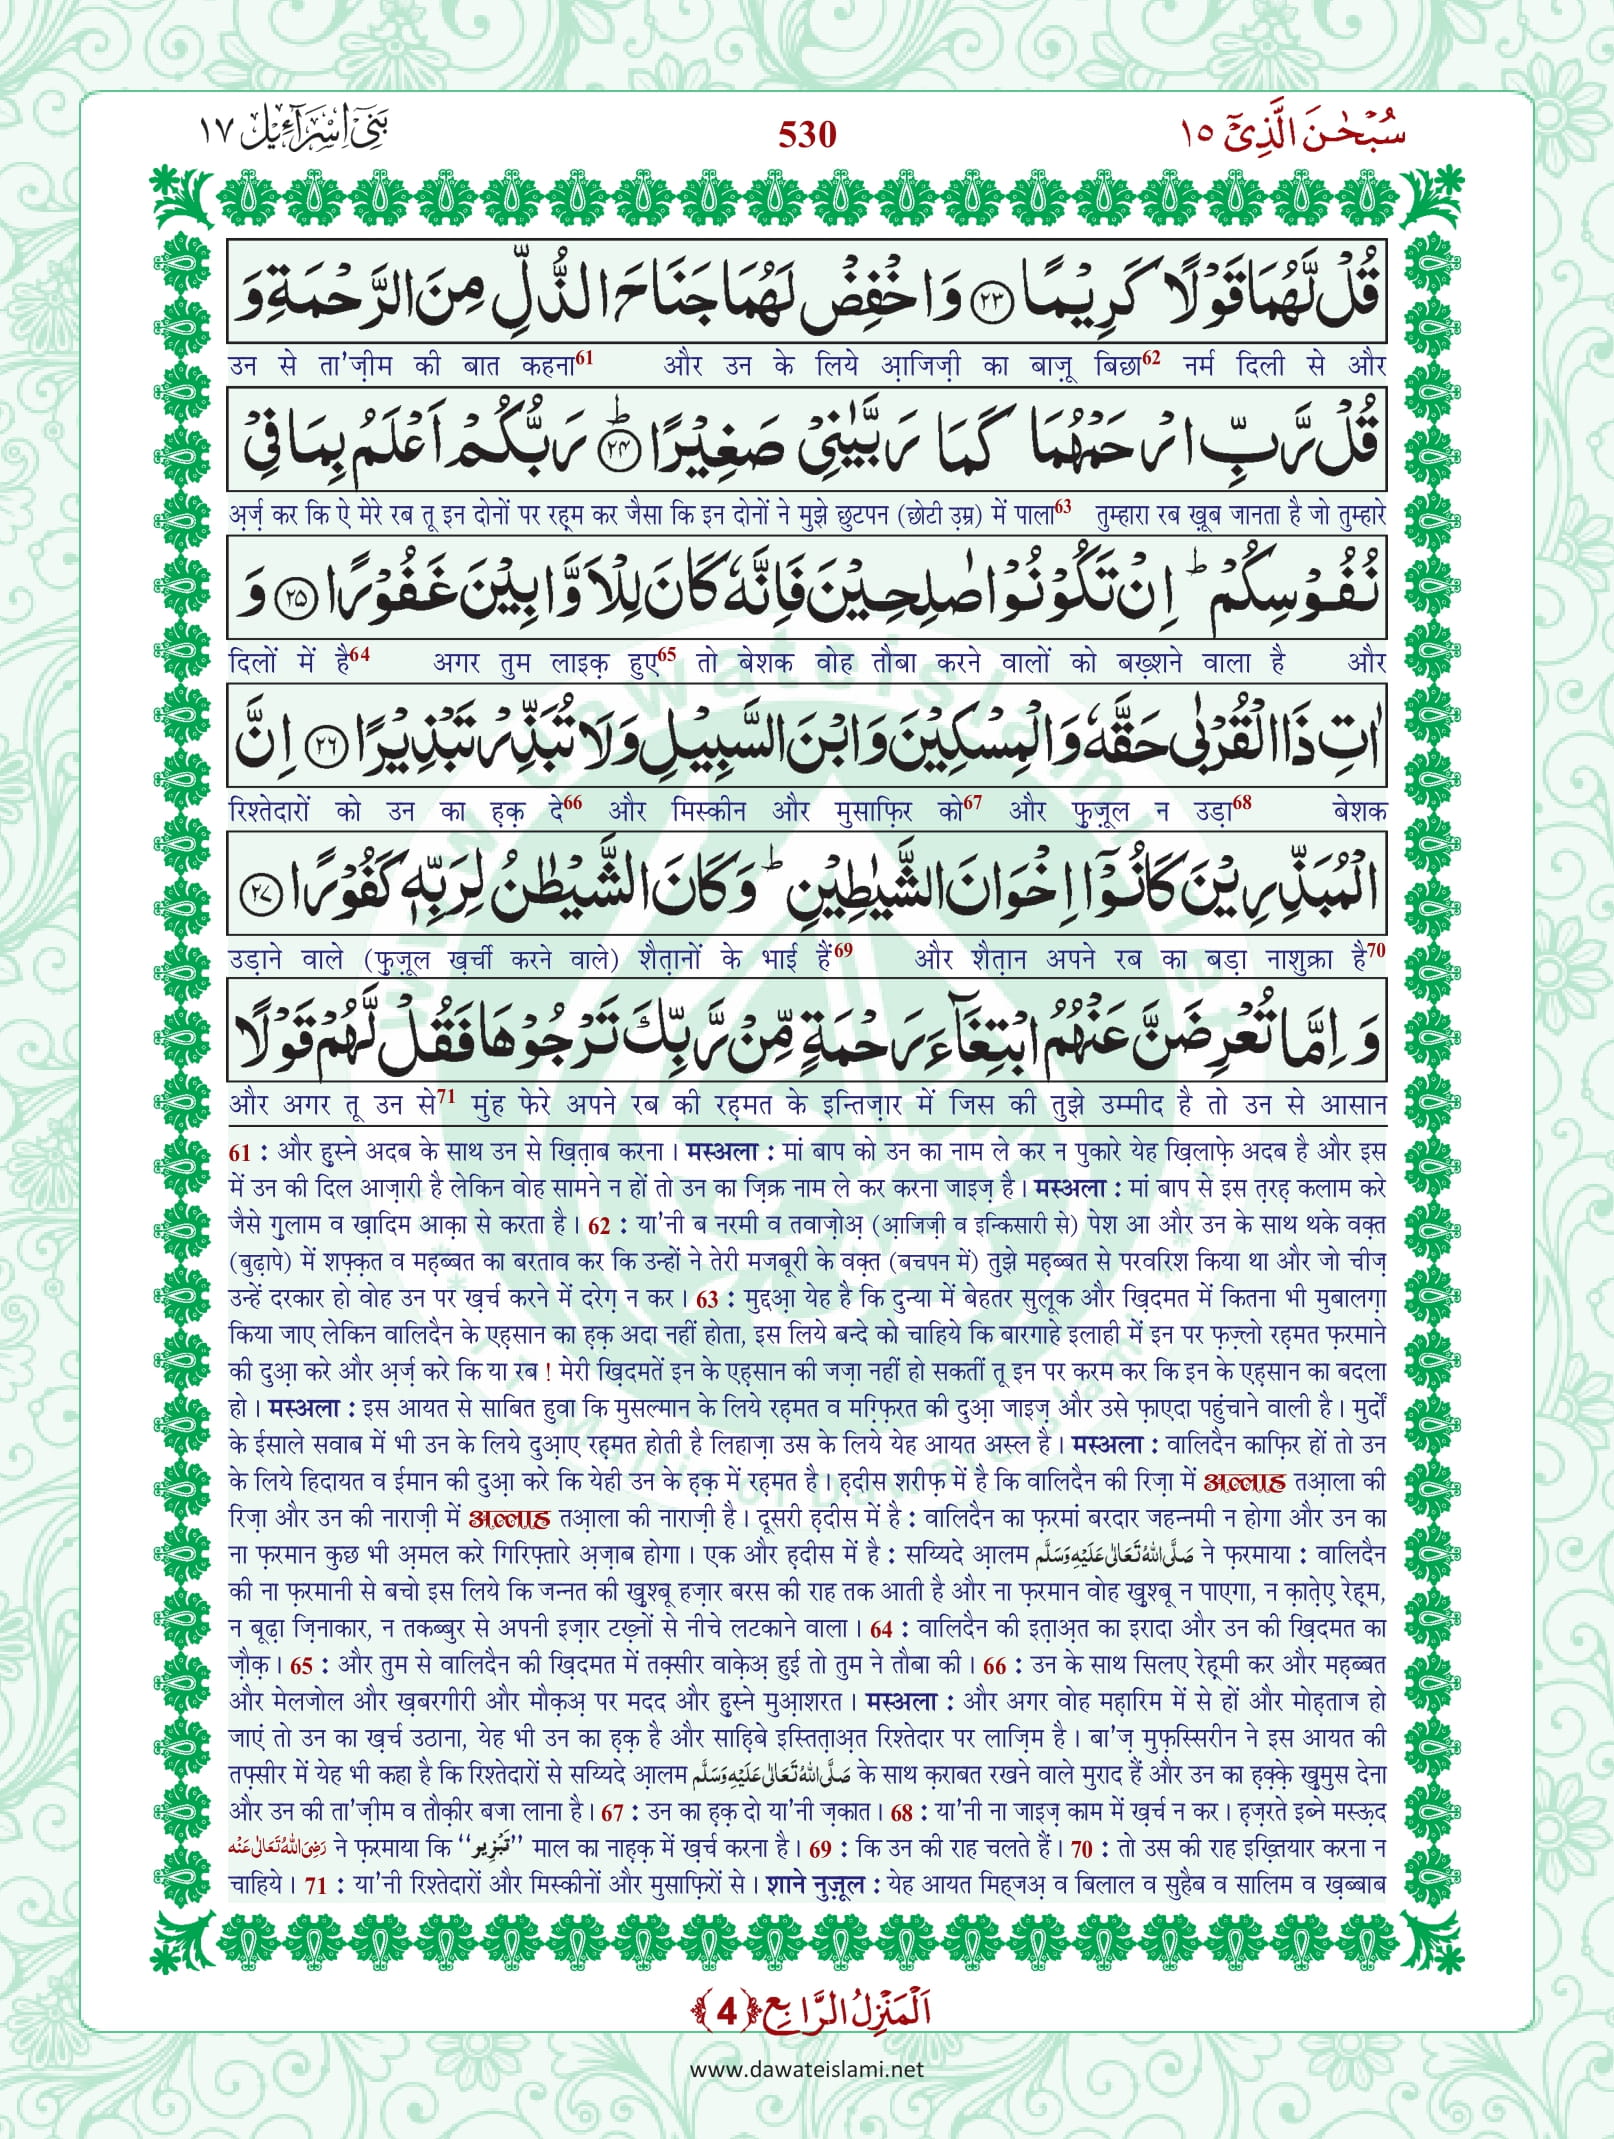 بَنِیْۤ اِسْرَآءِیْل ١٧
530
سُبْحٰنَ الَّذِیْۤ ١٥
قُلْ لَّهُمَا قَوْلًا كَرِیْمًا ﴿۲۳﴾ وَ اخْفِضْ لَهُمَا جَنَاحَ الذُّلِّ مِنَ الرَّحْمَةِ وَ
उन से ता'ज़ीम की बात कहना61 और उन के लिये आ़जिज़ी का बाज़ू बिछा62 नर्म दिली से और
قُلْ رَّبِّ ارْحَمْهُمَا كَمَا رَبَّیٰنِیْ صَغِیْرًاؕ ﴿۲۴﴾ رَبُّكُمْ اَعْلَمُ بِمَا فِیْ
अ़र्ज़ कर कि ऐ मेरे रब तू इन दोनों पर रह़्म कर जैसा कि इन दोनों ने मुझे छुटपन (छोटी उ़म्र) में पाला63 तुम्हारा रब ख़ूब जानता है जो तुम्हारे
نُفُوْسِكُمْؕ اِنْ تَكُوْنُوْا صٰلِحِیْنَ فَاِنَّهٗ كَانَ لِلْاَوَّابِیْنَ غَفُوْرًا ﴿۲۵﴾ وَ
दिलों में है64 अगर तुम लाइक़ हुए65 तो बेशक वोह तौबा करने वालों को बख़्शने वाला है और
اٰتِ ذَا الْقُرْبٰى حَقَّهٗ وَ الْمِسْكِیْنَ وَ ابْنَ السَّبِیْلِ وَ لَا تُبَذِّرْ تَبْذِیْرًا ﴿۲۶﴾ اِنَّ
रिश्तेदारों को उन का ह़क़ दे66 और मिस्कीन और मुसाफ़िर को67 और फ़ुज़ूल न उड़ा68 बेशक
الْمُبَذِّرِیْنَ كَانُوْۤا اِخْوَانَ الشَّیٰطِیْنِؕ وَ كَانَ الشَّیْطٰنُ لِرَبِّهٖ كَفُوْرًا ﴿۲۷﴾
उड़ाने वाले (फ़ुज़ूल ख़र्ची करने वाले) शैत़ानों के भाई हैं69 और शैत़ान अपने रब का बड़ा नाशुक्रा है70
وَ اِمَّا تُعْرِضَنَّ عَنْهُمُ ابْتِغَآءَ رَحْمَةٍ مِّنْ رَّبِّكَ تَرْجُوْهَا فَقُلْ لَّهُمْ قَوْلًا
और अगर तू उन से71 मुंह फेरे अपने रब की रह़मत के इन्तिज़ार में जिस की तुझे उम्मीद है तो उन से आसान
61 : और ह़ुस्ने अदब के साथ उन से ख़ित़ाब करना। मस्अला : मां बाप को उन का नाम ले कर न पुकारे येह ख़िलाफ़े अदब है और इस
में उन की दिल आज़ारी है लेकिन वोह सामने न हों तो उन का ज़िक्र नाम ले कर करना जाइज़ है। मस्अला : मां बाप से इस त़रह़ कलाम करे
जैसे ग़ुलाम व ख़ादिम आक़ा से करता है। 62 : या'नी ब नरमी व तवाज़ोअ़ (आजिज़ी व इन्किसारी से) पेश आ और उन के साथ थके वक़्त
(बुढ़ापे) में शफ़्क़त व मह़ब्बत का बरताव कर कि उन्हों ने तेरी मजबूरी के वक़्त (बचपन में) तुझे मह़ब्बत से परवरिश किया था और जो चीज़
उन्हें दरकार हो वोह उन पर ख़र्च करने में दरेग़ न कर। 63 : मुद्दआ़ येह है कि दुन्या में बेहतर सुलूक और ख़िदमत में कितना भी मुबालग़ा
किया जाए लेकिन वालिदैन के एह़सान का ह़क़ अदा नहीं होता, इस लिये बन्दे को चाहिये कि बारगाहे इलाही में इन पर फ़ज़्लो रह़मत फ़रमाने
की दुआ़ करे और अ़र्ज़ करे कि या रब ! मेरी ख़िदमतें इन के एह़सान की जज़ा नहीं हो सकतीं तू इन पर करम कर कि इन के एह़सान का बदला
हो। मस्अला : इस आयत से साबित हुवा कि मुसल्मान के लिये रह़मत व मग़्फ़िरत की दुआ़ जाइज़ और उसे फ़ाएदा पहुंचाने वाली है। मुर्दों
के ईसाले सवाब में भी उन के लिये दुआ़ए रह़मत होती है लिहाज़ा उस के लिये येह आयत अस्ल है। मस्अला : वालिदैन काफ़िर हों तो उन
के लिये हिदायत व ईमान की दुआ़ करे कि येही उन के ह़क़ में रह़मत है। ह़दीस शरीफ़ में है कि वालिदैन की रिज़ा में अल्लाह तआ़ला की
रिज़ा और उन की नाराज़ी में अल्लाह तआ़ला की नाराज़ी है। दूसरी ह़दीस में है : वालिदैन का फ़रमां बरदार जहन्नमी न होगा और उन का
ना फ़रमान कुछ भी अ़मल करे गिरिफ़्तारे अ़ज़ाब होगा। एक और ह़दीस में है : सय्यिदे आ़लम صَلَّى اللهُ تَعَالٰى عَلَیْهِ وَسَلَّم ने फ़रमाया : वालिदैन
की ना फ़रमानी से बचो इस लिये कि जन्नत की ख़ुश्बू हज़ार बरस की राह तक आती है और ना फ़रमान वोह ख़ुश्बू न पाएगा, न क़ात़ेए़ रेह़्म,
न बूढ़ा ज़िनाकार, न तकब्बुर से अपनी इज़ार टख़्नों से नीचे लटकाने वाला। 64 : वालिदैन की इत़ाअ़त का इरादा और उन की ख़िदमत का
ज़ौक़। 65 : और तुम से वालिदैन की ख़िदमत में तक़्सीर वाक़ेअ़ हुई तो तुम ने तौबा की। 66 : उन के साथ सिलए रेह़्मी कर और मह़ब्बत
और मेलजोल और ख़बरगीरी और मौक़अ़ पर मदद और ह़ुस्ने मुआ़शरत। मस्अला : और अगर वोह मह़ारिम में से हों और मोह़ताज हो
जाएं तो उन का ख़र्च उठाना, येह भी उन का ह़क़ है और साह़िबे इस्तित़ाअ़त रिश्तेदार पर लाज़िम है। बा'ज़ मुफ़स्सिरीन ने इस आयत की
तफ़्सीर में येह भी कहा है कि रिश्तेदारों से सय्यिदे आ़लम صَلَّى اللهُ تَعَالٰى عَلَیْهِ وَسَلَّم के साथ क़राबत रखने वाले मुराद हैं और उन का ह़क़्क़े ख़ुमुस देना
और उन की ता'ज़ीम व तौक़ीर बजा लाना है। 67 : उन का ह़क़ दो या'नी ज़कात। 68 : या'नी ना जाइज़ काम में ख़र्च न कर। ह़ज़रते इब्ने मस्ऊ़द
رَضِیَ اللهُ تَعَالٰى عَنْه ने फ़रमाया कि ‘‘تَبْزِیو’’ माल का नाह़क़ में ख़र्च करना है। 69 : कि उन की राह चलते हैं। 70 : तो उस की राह इख़्तियार करना न
चाहिये। 71 : या'नी रिश्तेदारों और मिस्कीनों और मुसाफ़िरों से। शाने नुज़ूल : येह आयत मिह्जअ़ व बिलाल व सुहैब व सालिम व ख़ब्बाब
اَلْمَنْزِلُ الرَّابِع ﴿4﴾
www.dawateislami.net